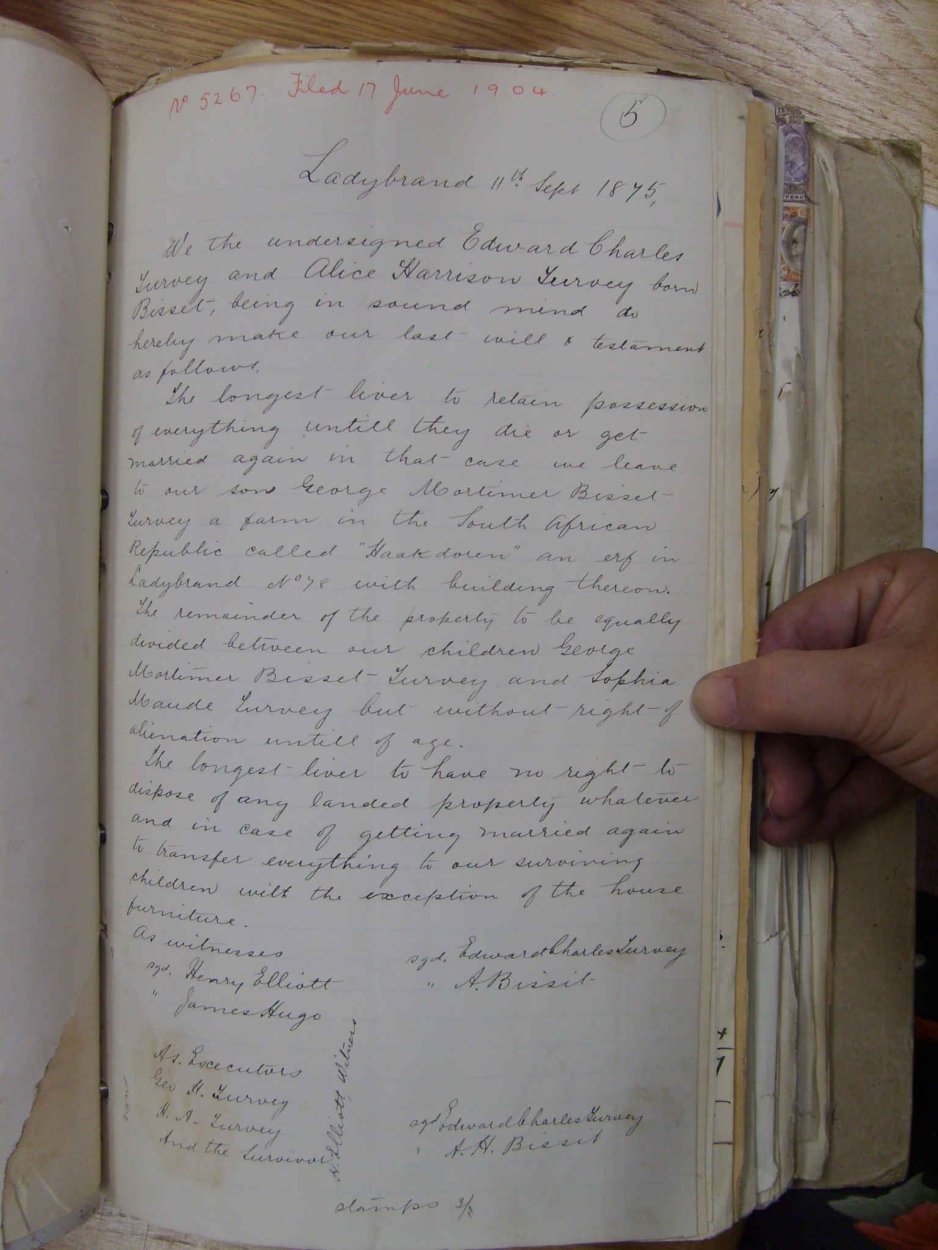 No 5267. Filed 17 June 1904
5
Ladybrand 11th Sept 1875,
We the undersigned Edward Charles
Turvey and Alice Harrison Turvey born
Bisset, being in sound mind do
hereby make our last will & testament
as follows.
The longest liver to retain possession
of everything untill they die or get
married again in that case we leave
to our son George Mortimer Bisset
Turvey a farm in the South African
Republic called "Haakdoren" an erf in
Ladybrand No 78 with building thereon.
The remainder of the property to be equally
divided between our children George
Mortimer Bisset Turvey and Sophia
Maude Turvey but without right of
alienation untill of age.
The longest liver to have no right to
dispose of any landed property whatever
and in case of getting married again
to transfer everything to our surviving
children with the exception of the house
furniture.
As witnesses
sgd. Henry Elliott
" James Hugo
sgd. Edward Charles Turvey
" A. Bissit
As. Executors
Geo H. Turvey
A. Turvey
And the Survivor
H. Elliott Witness
sgd Edward Charles Turvey
" A. H. Bissit
stamps